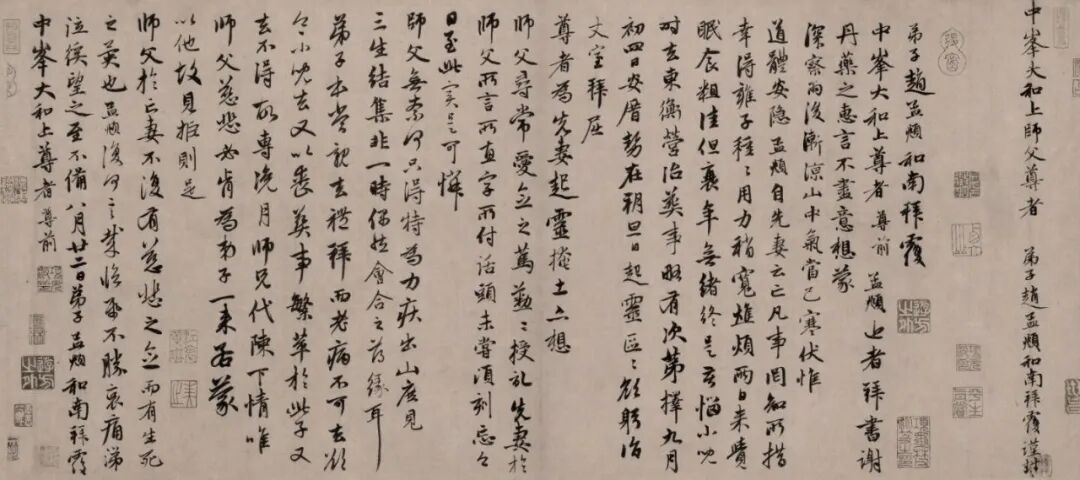 中峯大和上師父尊者 弟子趙孟頫和南拜覆謹封
弟子趙孟頫和南拜覆
中峯大和上尊者尊前 孟頫近者拜書謝
丹藥之惠言不盡意想蒙
深察雨後漸涼山中氣當已寒伏惟
道體安隱孟頫自先妻云亡凡事罔知所措
幸得雍子種〻用力稍寬燋煩兩日來
眠食粗佳但衰年無緒終是苦惱小兒
時去東衡營治葬事略有次第擇九月
初四日安厝勢在朔旦日起靈區〻欲躬詣
丈室拜屈
尊者為先妻起靈掩土亦想
師父尋常愛念之篤懃〻授記先妻於
師父所言所直字所付話頭未嘗頃刻忘今
日至此實是可憐
師父無奈何只得特為力疾出山庶見
三生結集非一時偶然會合之薄緣耳
弟子本當親去禮拜而老病不可去欲
令小兒去又以喪葬事繁萃於此子又
去不得所專浼月師兄代陳下情唯
師父慈悲必肯為弟子一來若蒙
以他故見拒則是
師父於亡妻不復有慈悲之念而有生死
之異也孟頫復何言哉臨紙不勝哀痛涕
泣徯望之至不備八月廿二日弟子孟頫和南拜覆
中峯大和上尊者尊前